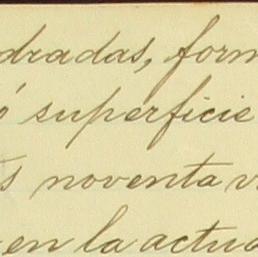 dradas, form
ó superficie
s noventa v
en la actua